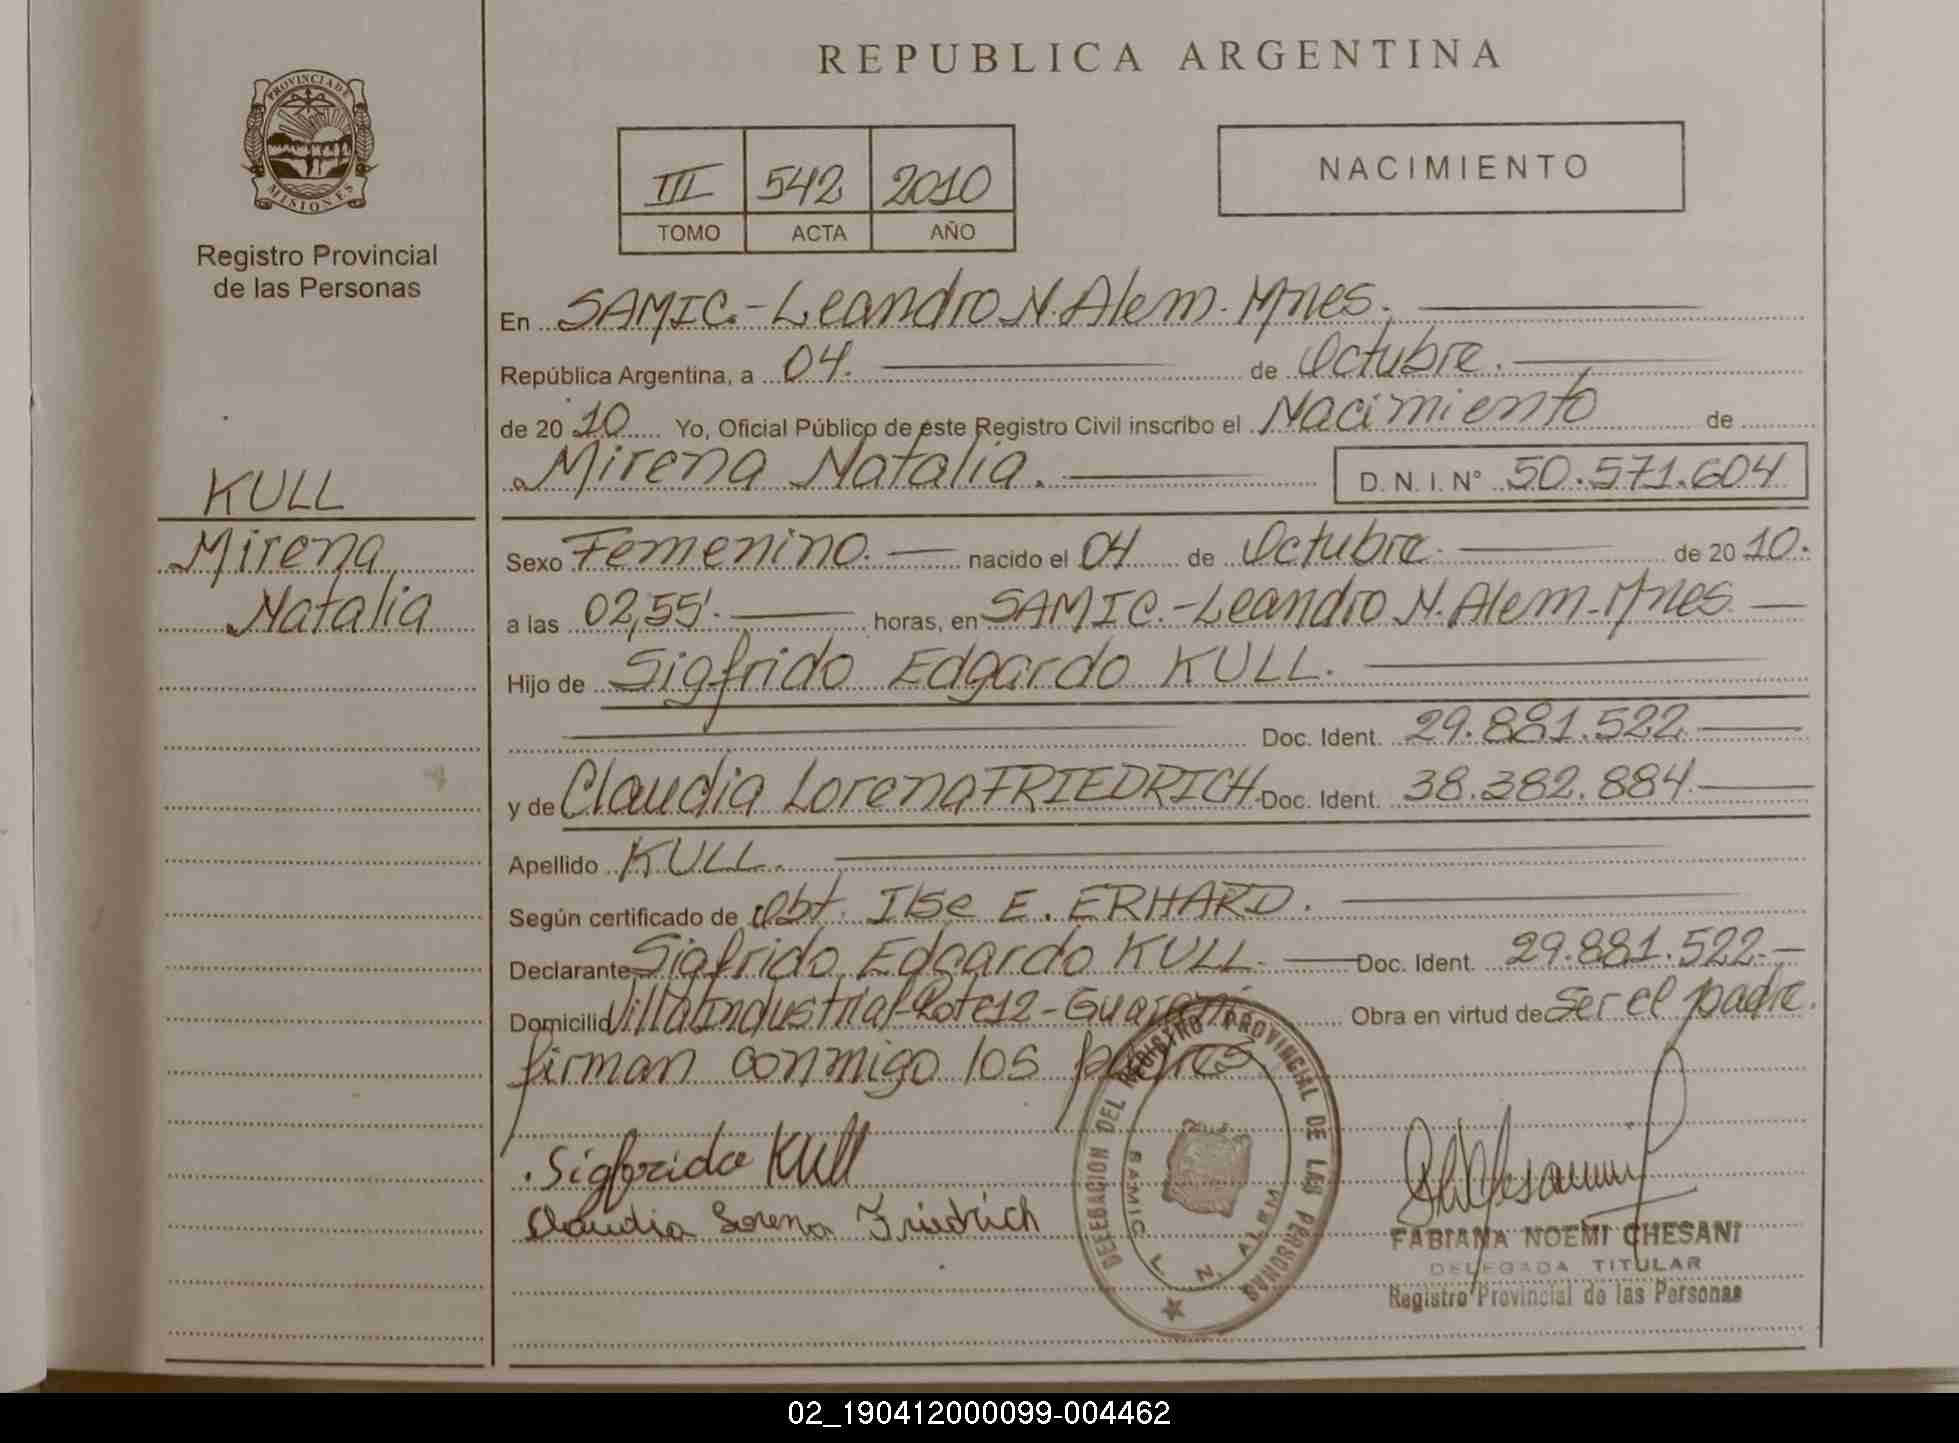 REPUBLICA ARGENTINA
PROVINCIA DE MISIONES
Registro Provincial
de las Personas
III 542 2010
TOMO ACTA AÑO
NACIMIENTO
KULL
Mirena
Natalia
En SAMIC.-Leandro N. Alem. Mnes.
República Argentina, a 04. de Octubre.
de 20 10 Yo, Oficial Público de este Registro Civil inscribo el Nacimiento de
Mirena Natalia. D. N. I. N° 50.571.604
Sexo Femenino. nacido el 04 de Octubre. de 20 10.
a las 02,55'. horas, en SAMIC.-Leandro N. Alem-Mnes
Hijo de Sigfrido Edgardo KULL.
Doc. Ident. 29.881.522
y de Claudia Lorena FRIEDRICH. Doc. Ident. 38.382.884.
Apellido KULL.
Según certificado de Obt. Ilse E. ERHARD.
Declarante Sigfrido Edgardo KULL. Doc. Ident. 29.881.522.-
Domicilio Villa Industrial-Lote 12-Guaraní Obra en virtud de Ser el padre.
firman conmigo los padres
Sigfrido Kull
Claudia Lorena Friedrich
DELEGACION DEL REGISTRO PROVINCIAL DE LAS PERSONAS
SAMIC L. N. ALEM
FABIANA NOEMI CHESANI
DELEGADA TITULAR
Registro Provincial de las Personas
02_190412000099-004462